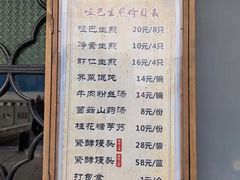 哑巴生煎价目表
哑巴生煎 20元/8只
净蜜生煎 10元/4只
虾仁生煎 16元/4只
荠菜馄饨 14元/碗
牛肉粉丝汤 14元/碗
菌菇山药汤 8元/份
桂花糖芋艿 10元/份
紧酵馒头 28元/袋
紧酵馒头 58元/蓝
打包盒 1元/个